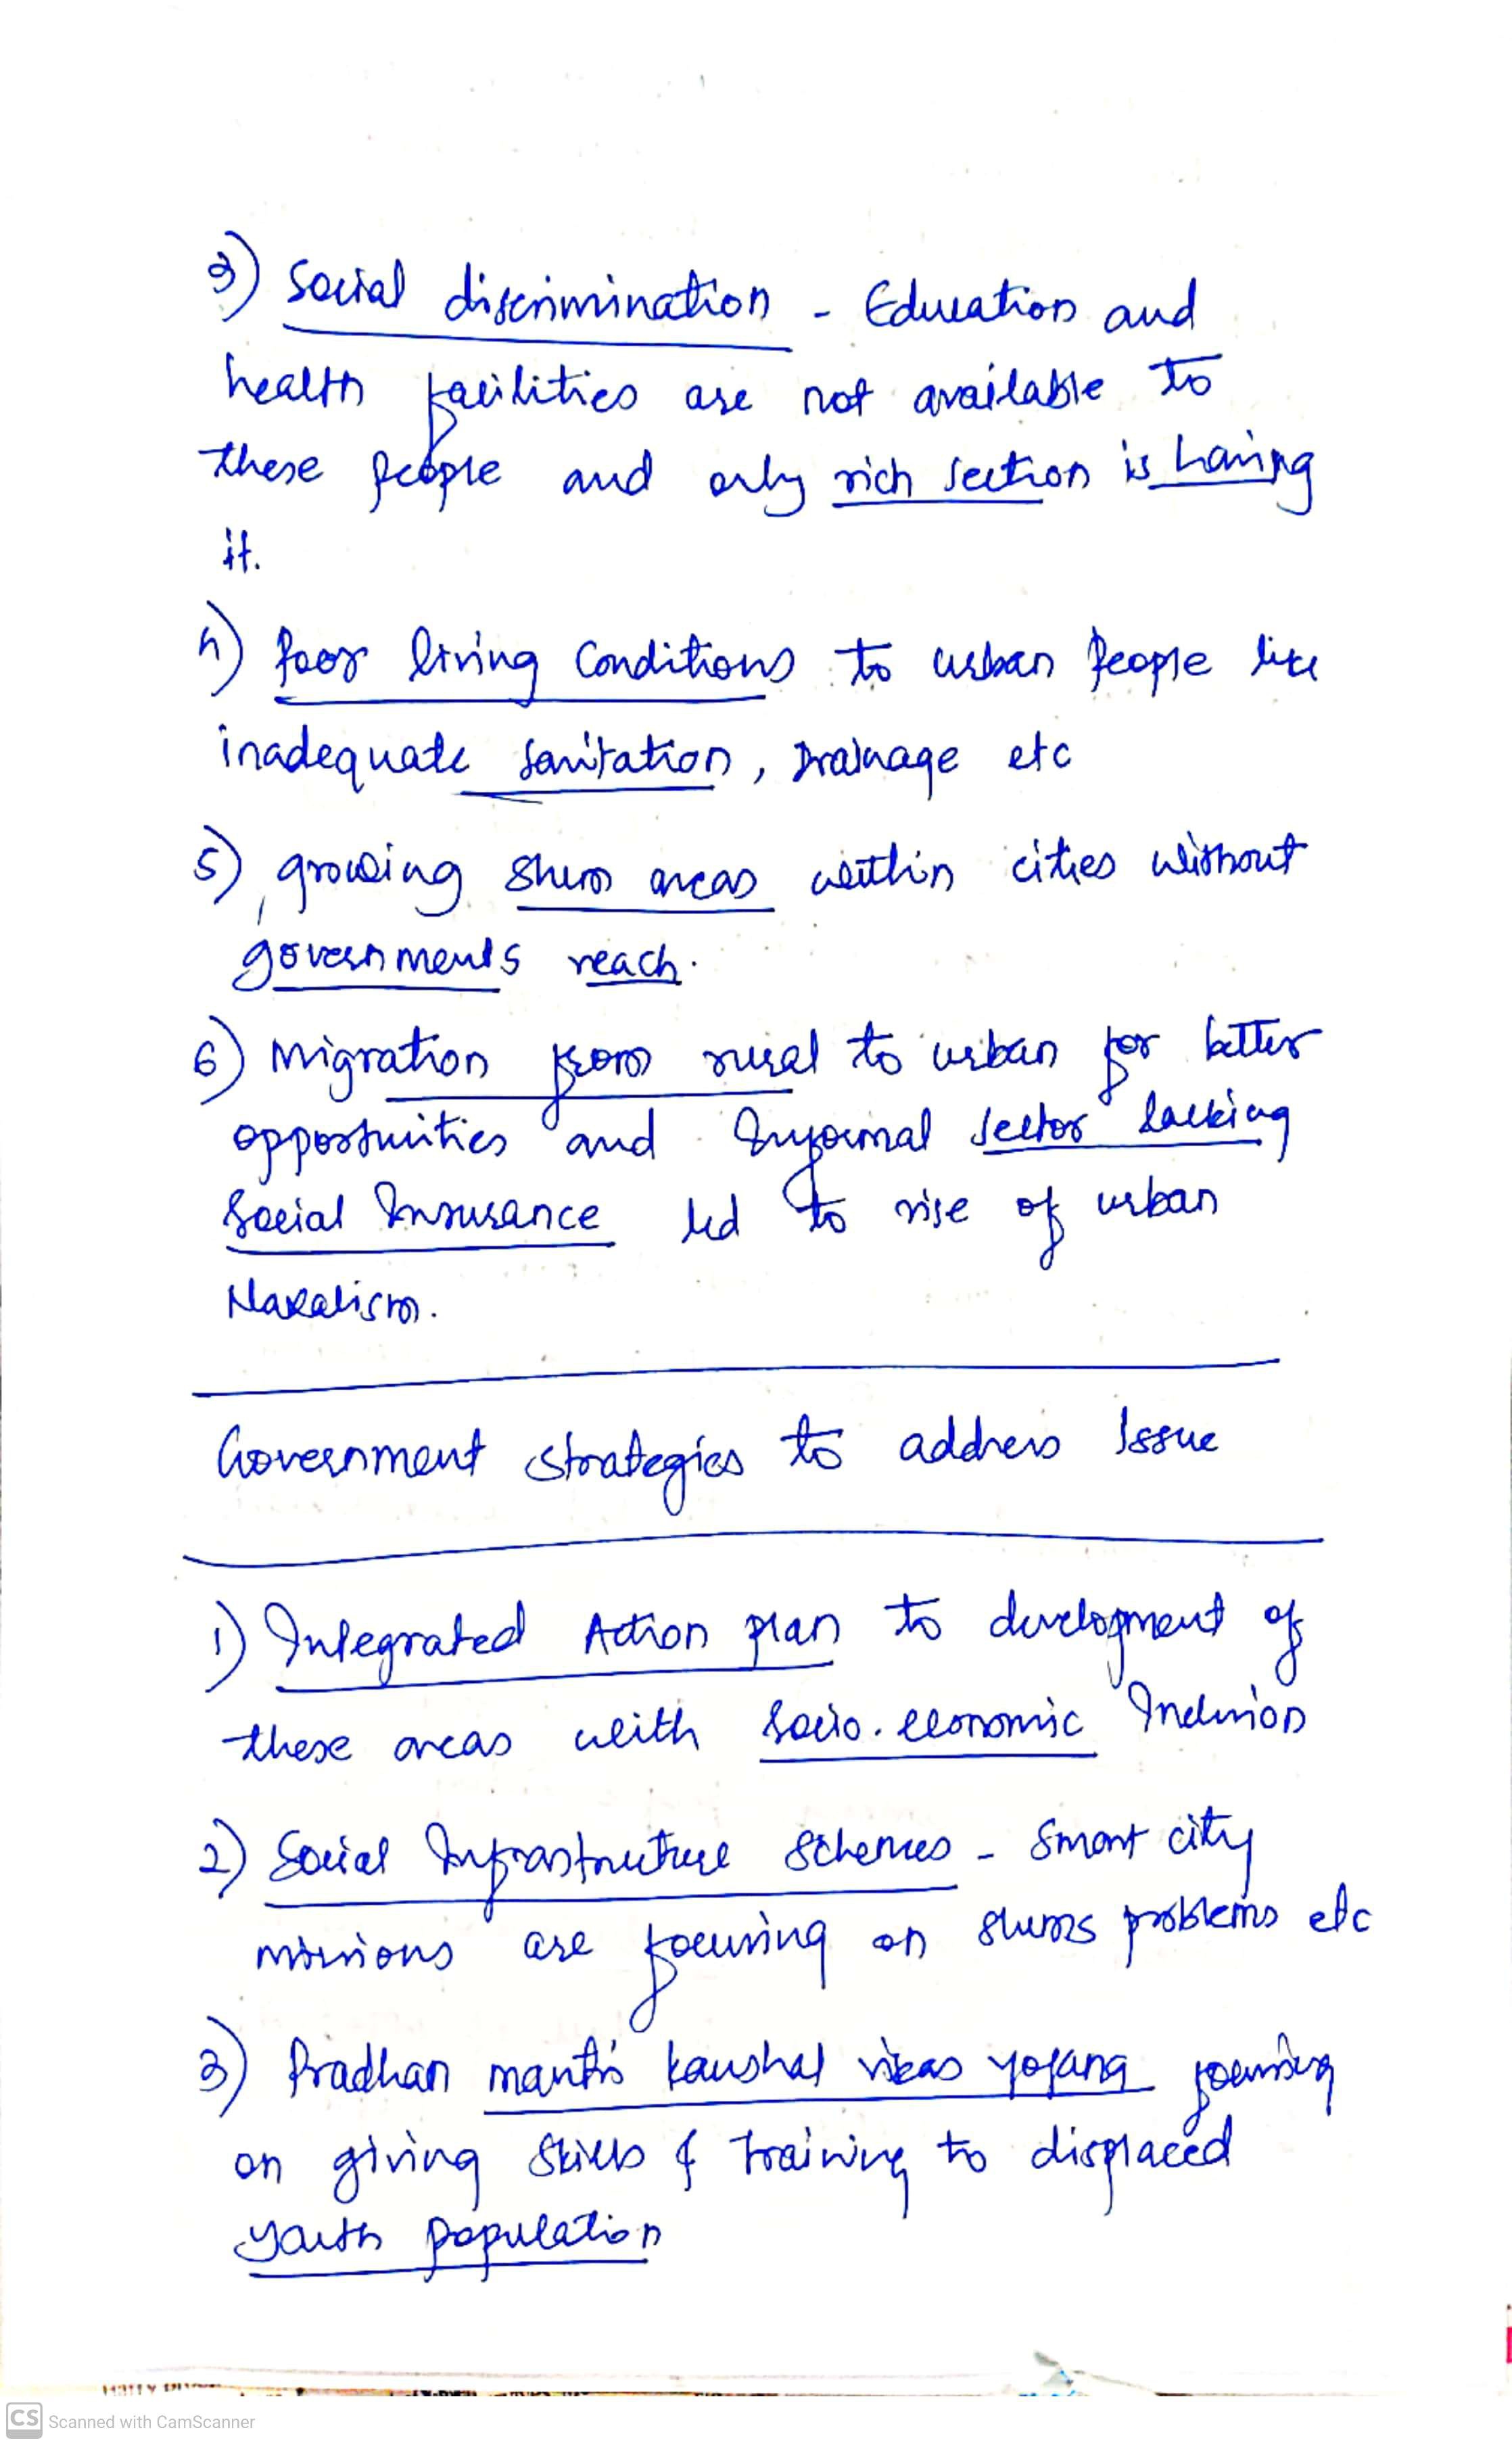 3) Social discrimination - Education and
health facilities are not available to
these people and only rich section is having
it.
4) Poor living Conditions to urban people like
inadequate sanitation, Drainage etc
5) growing slum areas within cities without
governments reach.
6) Migration from rural to urban for better
opportunities and Informal sector lacking
Social Insurance led to rise of urban
Naxalism.
Government strategies to address Issue
1) Integrated Action plan to development of
these areas with Socio-economic Inclusion
2) Social Infrastructure Schemes - Smart city
missions are focusing on slums problems etc
3) Pradhan mantri kaushal vikas yojana focusing
on giving skills & training to displaced
youth population
CS Scanned with CamScanner